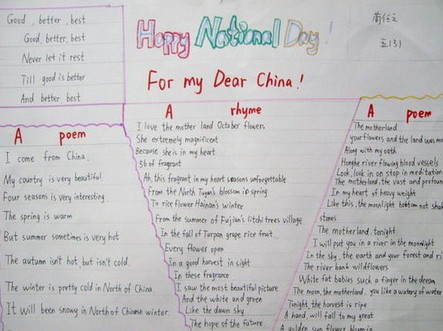 Good, better, best
Good, better, best
Never let it rest
Till good is better
And better, best
Happy National Day!
For my Dear China!
A poem
I come from China.
My country is very beautiful.
Four seasons is very interesting.
The spring is warm
But summer sometimes is very hot
The autumn isn't hot, but isn't cold.
The winter is pretty cold in North of China
It will been snowy in North of China winter.
A rhyme
I love the mother land October flowers
She extremely magnificent
Because she is in my heart
Sb of fragrant
Ah, this fragrant in my heart seasons unforgettable
From the North Tuyan's blossom in spring
To rice flower Hainan's winter
From the summer of Fujian's litchi trees village
In the fall of Turpan grape rice fruit
Every flower open
In a good harvest in sight
In these fragrance
I saw the most beautiful picture
And the white and green
Like the dawn sky
The hope of the future
A poem
The motherland
your flowers and the land was
Along with my oath
Honghe river flowing blood vessels
Look, look in on stop in meditation
The motherland, the vast and profoun
In my heart of heavy weight
Like this, the moonlight bottom not
stares
The motherland, tonight
I will put you in a river in the moonlight
In the sky, the earth and your forest and
The river bank wildflowers
White fat babies suck a finger in the dream
The moon, the motherland, you like a watery of water
Tonight, the harvest is ripe
A hand, will fall to my great
A golden sun flower bloom in